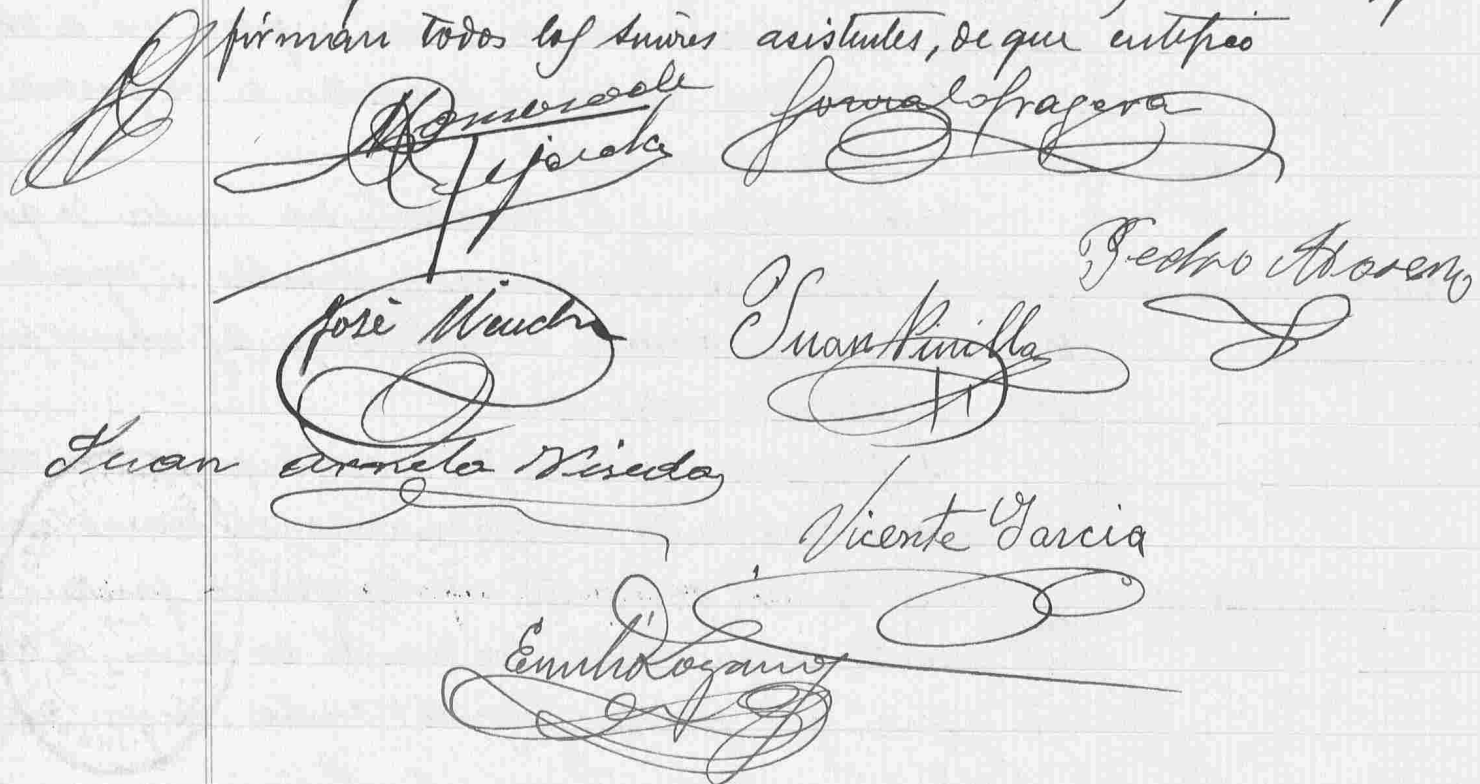 firman todos los señores asistentes, de que certifico
Gonzalo Fragera
Pedro Moreno
José
Juan Pinilla
Juan Viseda
Vicente Garcia
Emilio Lozano